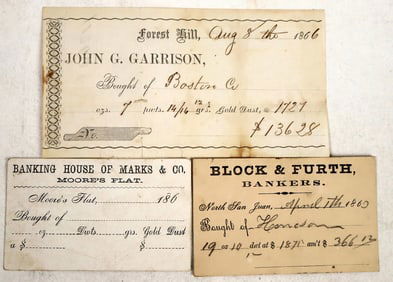 Forest Hill, Aug 8 th 1866
JOHN G. GARRISON,
Bought of Boston Co
ozs. 7 pwts. 14/14 12 grs. Gold Dust, a 1727
$136 28
No.
BANKING HOUSE OF MARKS & CO.
MOORE'S FLAT.
Moore's Flat, 186
Bought of
oz. Dwts. grs. Gold Dust
a $ $
BLOCK & FURTH,
BANKERS.
North San Juan, April 186
Bought of Harrison
19 oz 10 dwt at $ 1875 am't $ 366 12